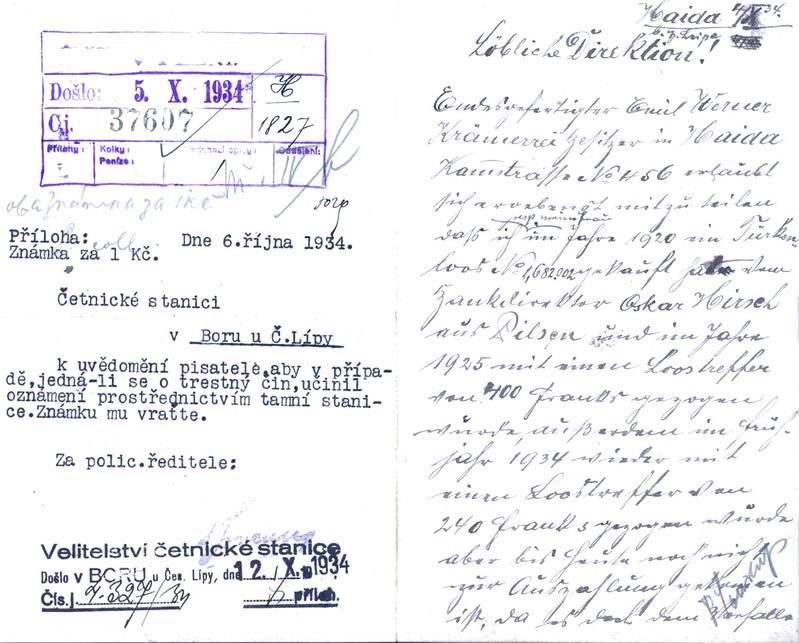 Došlo: 5. X. 1934
Čj. 37607
H
1827
Přílohy:
Kolky:
Peníze:
Oddělení:
IV
Příloha:
Známka za 1 Kč.
Dne 6.října 1934.
Četnické stanici
v Boru u Č.Lípy
k uvědomění pisatele,aby v přípa-
dě,jedná-li se o trestný čin,učinil
oznámení prostřednictvím tamní stani-
ce.Známku mu vraťte.
Za polic.ředitele:
Velitelství četnické stanice
Došlo v BORU u Čes. Lípy, dne 12. X. 1934
Čís.j. 4.327/34 příloh.
Haida 4/X 34.
b. B. Leipa
Löbliche Direktion!
Endesgefertigter Emil Werner
Krämerrei besitzer in Haida
Kamstrasse No 456 erlaubt
sich ergebenst mitzu teilen
resp meine Frau
daß ich im Jahre 1920 ein Türken-
loos No 1,682.002 gekauft hatte vom
Bankdirektor Oskar Hirsch
aus Pilsen und im Jahre
1925 mit einen Loostreffer
von 400 Franks gezogen
wurde, außerdem im früh-
jahr 1934 wieder mit
einen Loostreffer von
240 Franks gezogen wurde
aber bis heute noch nicht
zur Auszahlung gekommen
ist, da es doch dem Verfalle